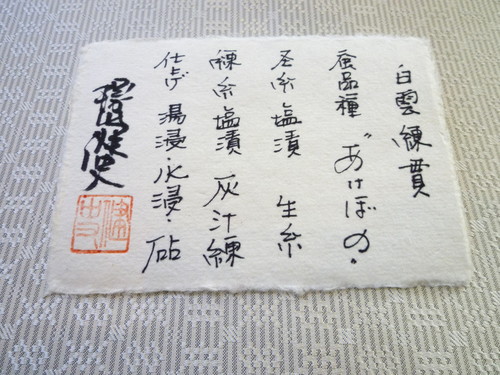 白雲練貫
蚕品種 “あけぼの”
圣糸塩漬 生糸
練糸塩漬 灰汁練
仕上げ 湯浸・水浸・砧